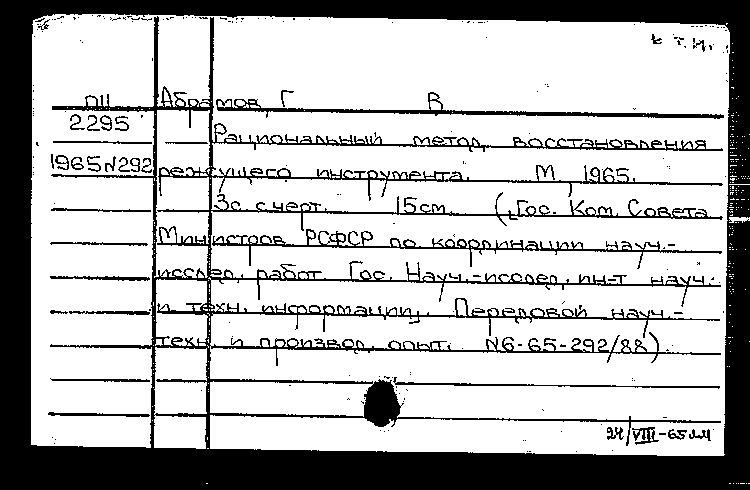 в т.н.
П11 Абрамов, Г В
2295 Рациональный метод восстановления
1965N292 режущего инструмента. М., 1965.
3с. с черт. 15см. (Гос. Ком. Совета
Министров РСФСР по координации науч.-
исслед. работ. Гос. Науч.-исслед. ин-т науч.
и техн. информации. Передовой науч.-
техн. и производ. опыт. N6-65-292/88)
24/VIII-65